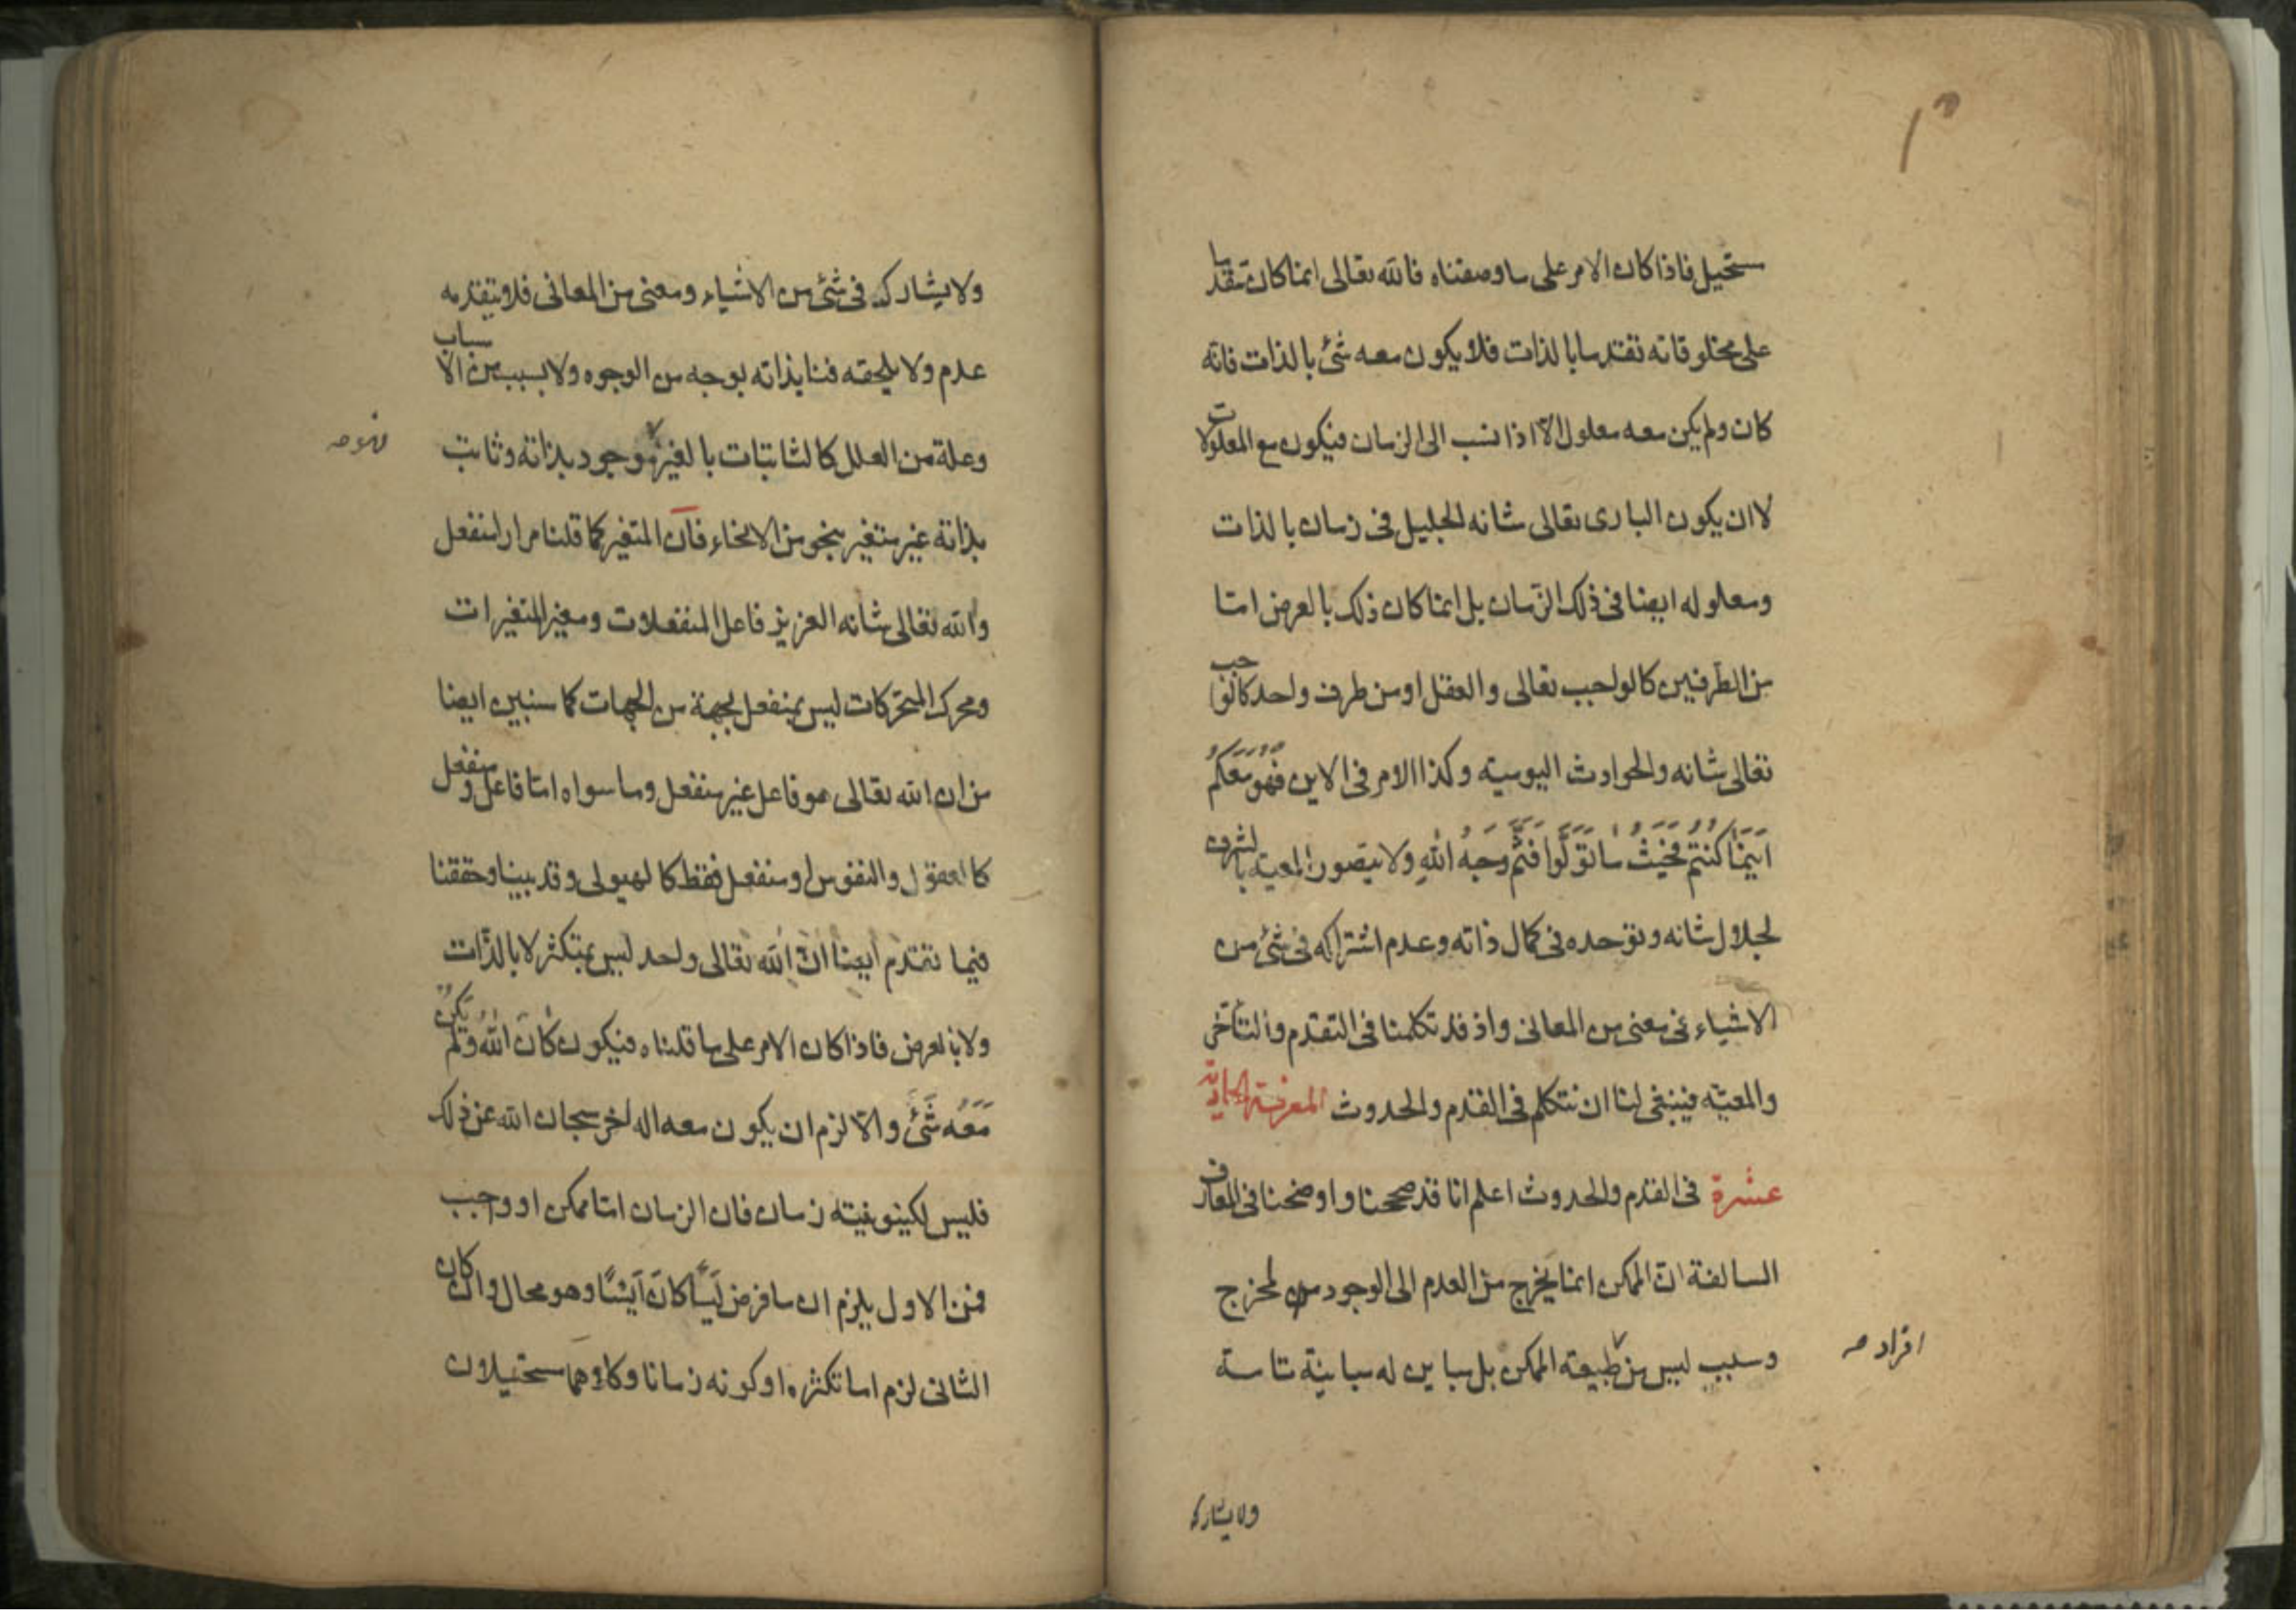 ستحيل فاذا كان الامر على ما وصفناه فالله تعالى انما كان تقدما
على مخلوقاته تقدما بالذات فلا يكون معه شئ بالذات فانه
كان ولم يكن معه معلول الا اذا نسب الى الزمان فيكون مع المعلولات
لا ان يكون البارى تعالى شانه الجليل فى زمان بالذات
ومعلوله ايضا فى ذلك الزمان بل انما كان ذلك بالعرض اما
من الطرفين كالواجب تعالى والعقل او من طرف واحد كالواجب
تعالى شانه والحوادث اليومية وكذا الامر فى الاين فَهُوَ مَعَكُمْ
اَيْنَمَا كُنْتُمْ فَحَيْثُ مَا تَوَلَّوا فَثَمَّ وَجْهُ اللهِ ولا يتصور المعية بالشرف
لجلال شانه وتوحده فى كمال ذاته وعدم اشتراكه فى شئ من
الاشياء فى معنى من المعانى واذ قد تكلمنا فى التقدم والتأخر
والمعيّة فينبغى لنا ان نتكلم فى القدم والحدوث المعرفة الحادية
عشرة فى القدم والحدوث اعلم انا قد صححنا واوضحنا فى المعارف
السالفة انّ الممكن انما يخرج من العدم الى الوجود من مخرج
وسبب ليس من طبيعته الممكن بل مباين له مباينة تامة
افراد صح
ولا يشارك
ولا يشارك فى شئ من الاشياء ومعنى من المعانى فلا يتقدمه
عدم ولا يلحقه فنا بذاته بوجه من الوجوه ولا بسبب من الاسباب
وعلة من العلل كالثابتات بالغير موجود بذاته وثابت
فهو صح
بذاته غير متغير بنحو من الانحاء فان المتغير كما قلنا مرارا منفعل
والله تعالى شانه العزيز فاعل المنفعلات ومغير المتغيرات
ومحرك المتحركات ليس بمنفعل بجهة من الجهات كما سنبين ايضا
من ان الله تعالى هو فاعل غير منفعل وما سواه اما فاعل ومنفعل
كالعقول والنفوس او منفعل فقط كالهيولى وقد بينا وحققنا
فيما تقدم ايضا انّ الله تعالى واحد ليس بمتكثر لا بالذّات
ولا بالعرض فاذا كان الامر على ما قلناه فيكون كَانَ اللهُ وَلَمْ يَكُنْ
مَعَهُ شَئٌ والّا لزم ان يكون معه اله اخر سبحان الله عن ذلك
فليس لكينونيته زمان فان الزمان اما ممكن او واجب
فمن الاول يلزم ان ما فرض لَيْسًا كانَ اَيْسًا وهو محال وان كان
الثانى لزم اما تكثره او كونه زمانا وكلاهما مستحيلان